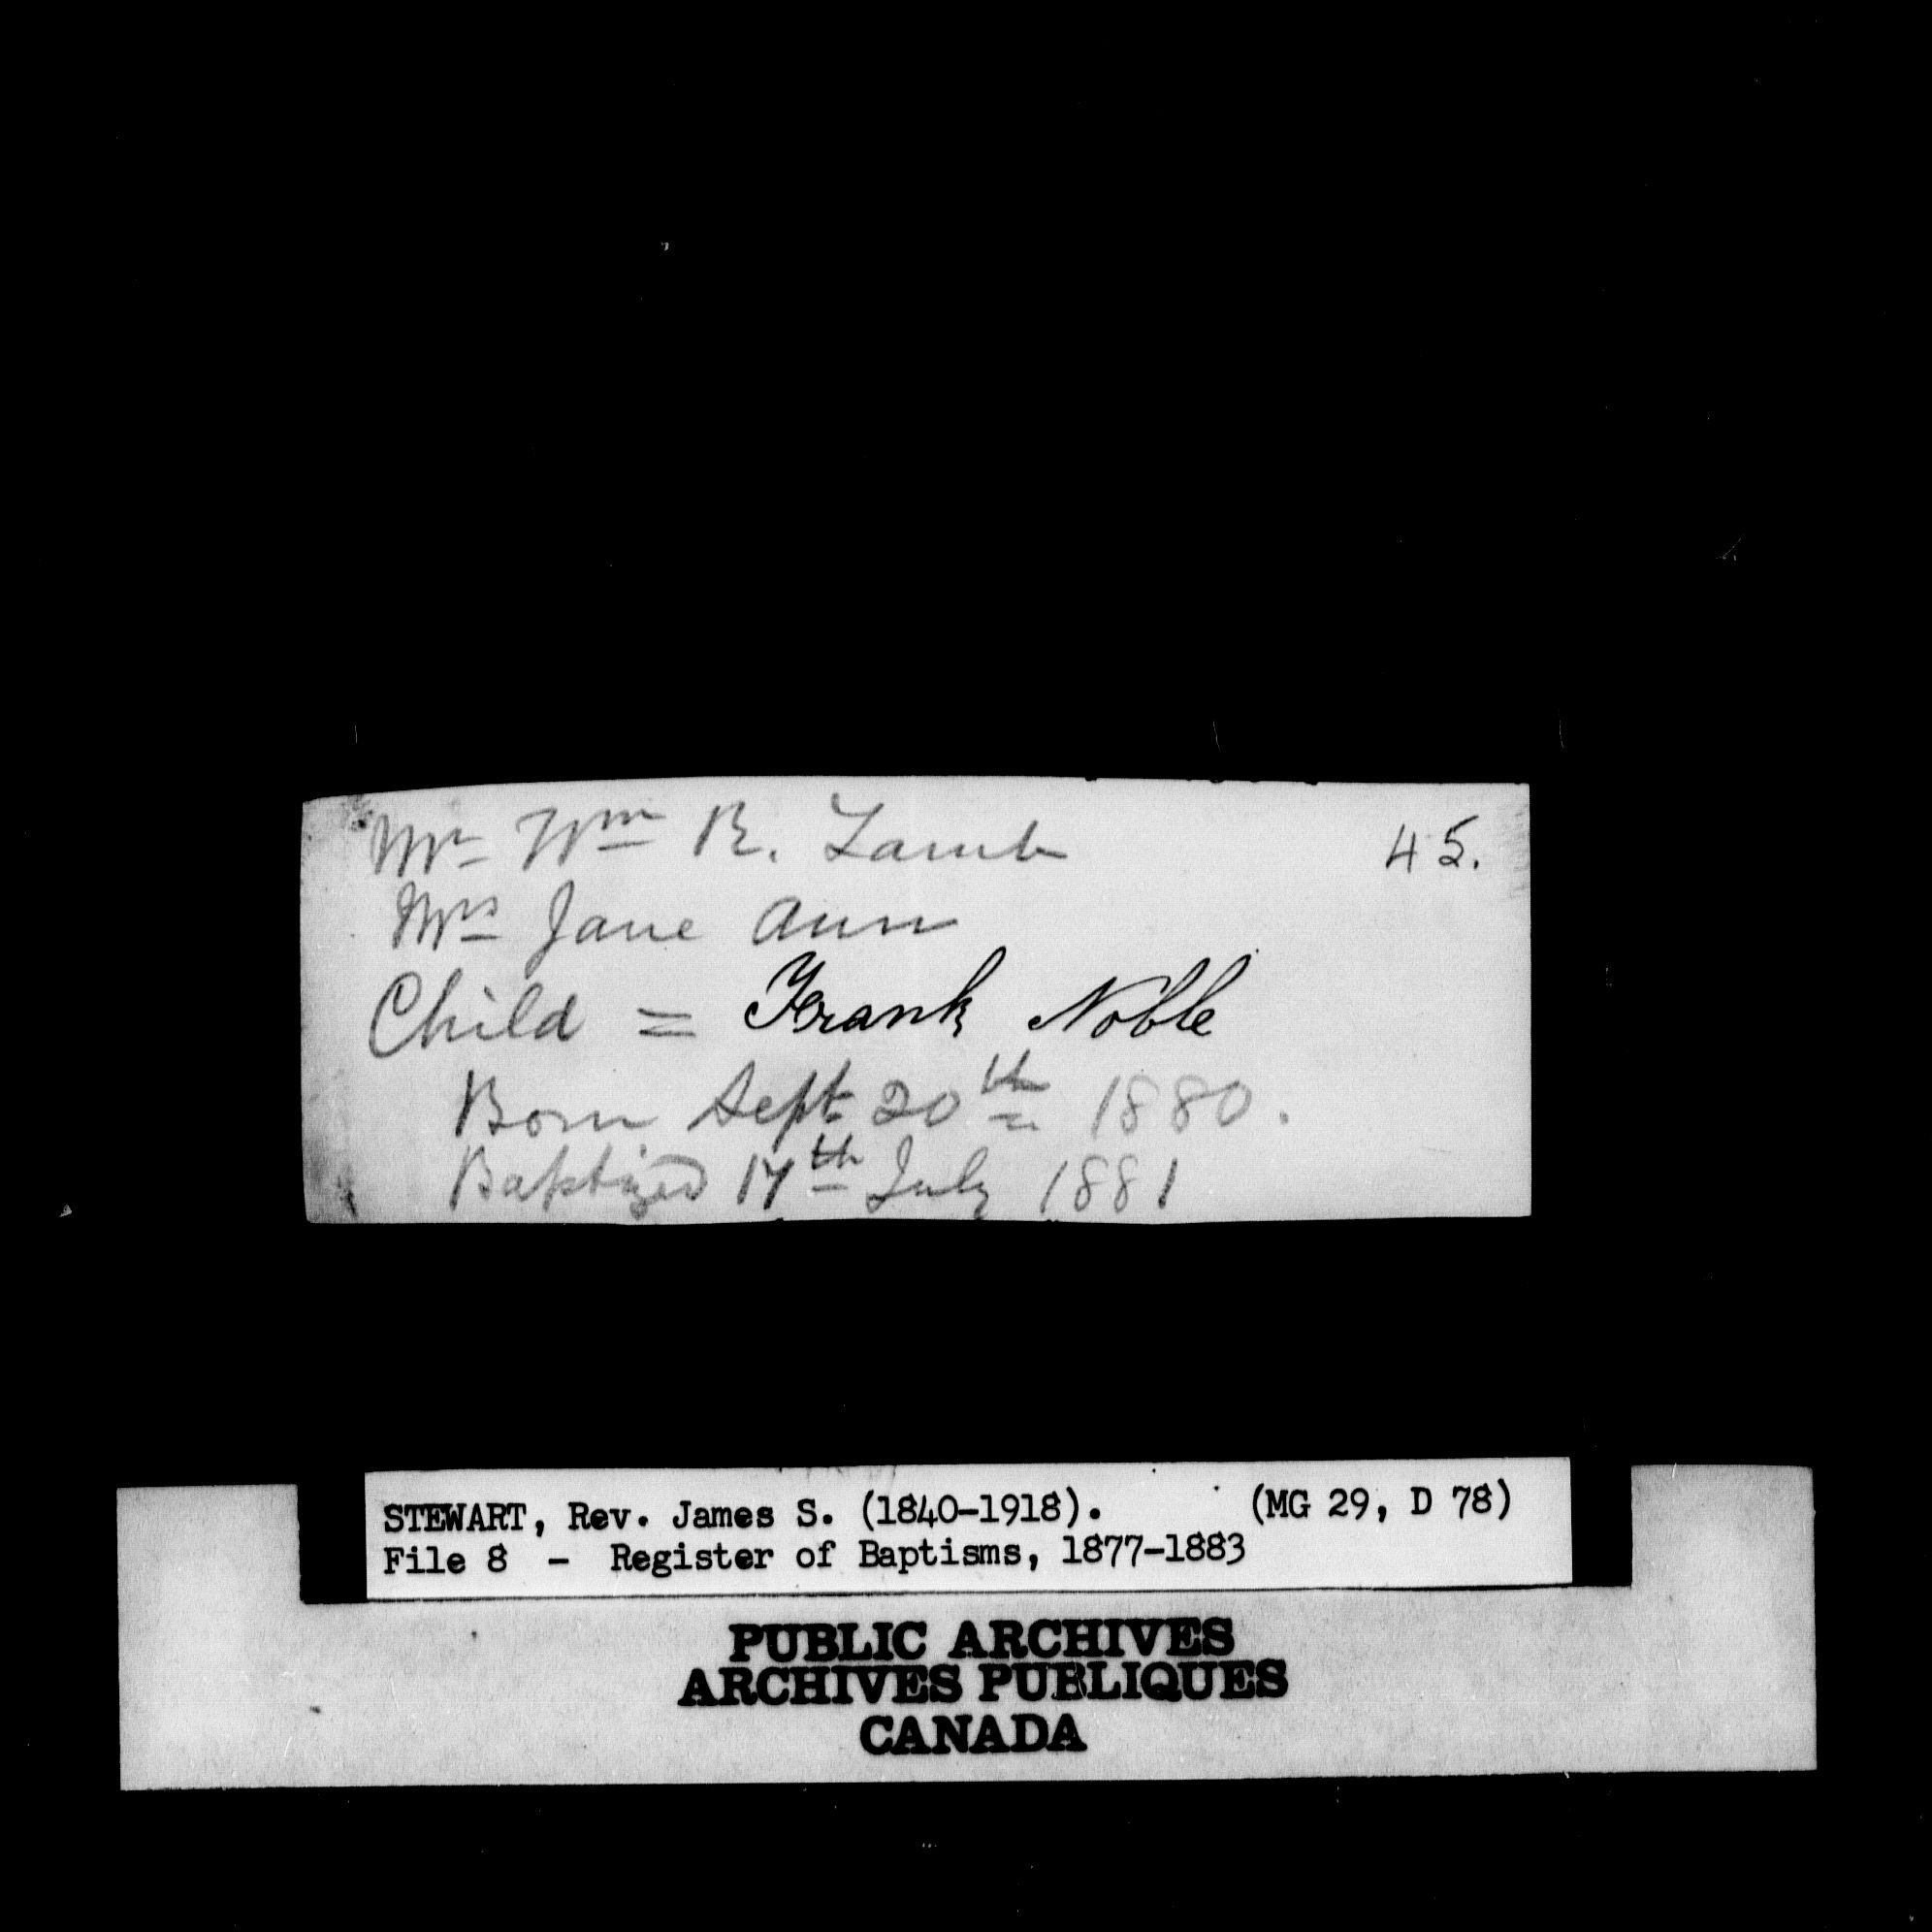 Mr Wm R. Lamb 45.
Mrs Jane Ann
Child = Frank Noble
Born Sept 20th 1880.
Baptized 17th July 1881
STEWART, Rev. James S. (1840-1918). (MG 29, D 78)
File 8 - Register of Baptisms, 1877-1883
PUBLIC ARCHIVES
ARCHIVES PUBLIQUES
CANADA